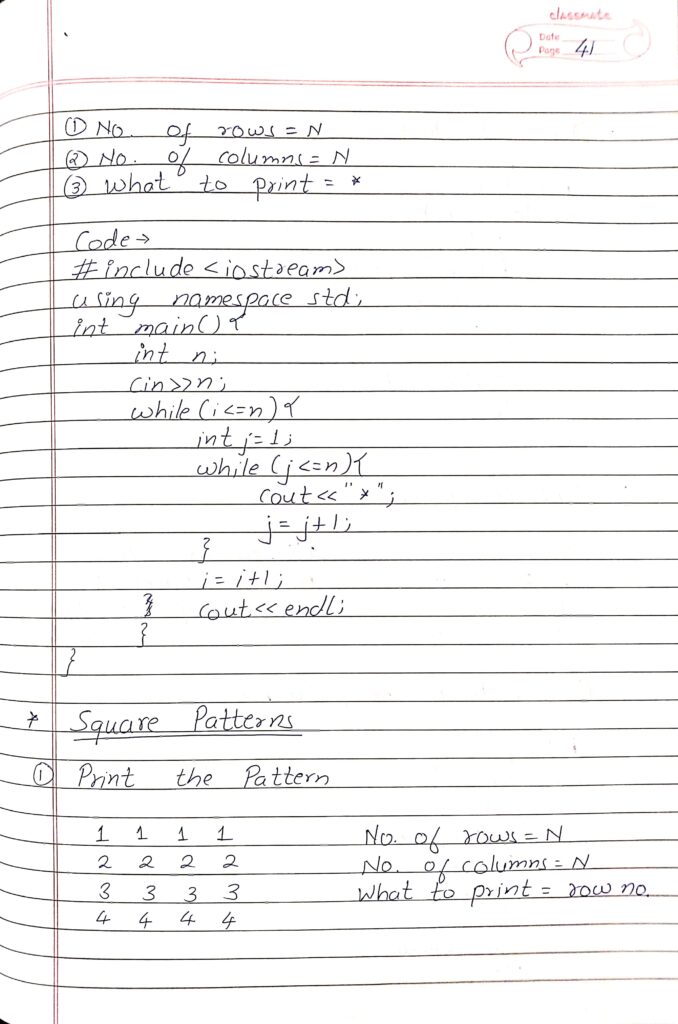 classmate
Date
Page 41
① No. of rows = N
② No. of columns = N
③ What to print = *
Code →
#include <iostream>
using namespace std;
int main() {
int n;
cin>>n;
while (i<=n) {
int j=1;
while (j<=n){
cout<<"*";
j = j+1;
}
i = i+1;
} cout<<endl;
}
}
* Square Patterns
① Print the Pattern
1 1 1 1 No. of rows = N
2 2 2 2 No. of columns = N
3 3 3 3 What to print = row no.
4 4 4 4